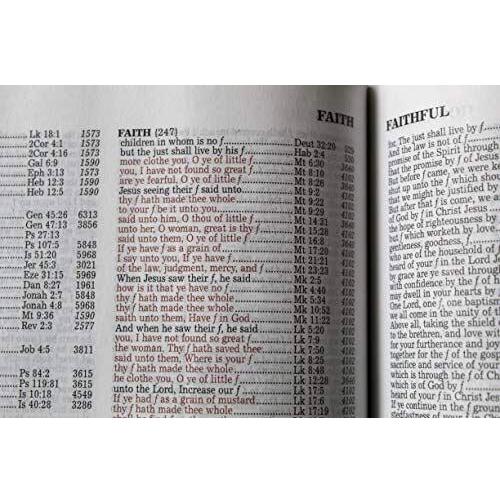 FAITH
Lk 18:1 1573
2Cor 4:1 1573
2Cor 4:16 1573
Gal 6:9 1590
Eph 3:13 1573
Heb 12:3 1590
Heb 12:5 1590
Gen 45:26 6313
Gen 47:13 3856
Ps 27:13
Ps 107:5 5848
Is 51:20 5968
Jer 45:3 3021
Eze 31:15 5969
Dan 8:27 1961
Jonah 2:7 5848
Jonah 4:8 5968
Mt 9:36 1590
Rev 2:3 2577
Job 4:5 3811
Ps 84:2 3615
Ps 119:81 3615
Is 10:18 4549
Is 40:28 3286
FAITH (247)
children in whom is no f Deut 32:20 529
but the just shall live by his f Hab 2:4 530
more clothe you, O ye of little f Mt 6:30 3640
you, I have not found so great f Mt 8:10 4102
are ye fearful, O ye of little f Mt 8:26 3640
Jesus seeing their f said unto Mt 9:2 4102
thy f hath made thee whole Mt 9:22 4102
to your f be it unto you Mt 9:29 4102
said unto him, O thou of little f Mt 14:31 3640
unto her, O woman, great is thy f Mt 15:28 4102
said unto them, O ye of little f Mt 16:8 3640
If ye have f as a grain of Mt 17:20 4102
I say unto you, If ye have f Mt 21:21 4102
of the law, judgment, mercy, and f Mt 23:23 4102
When Jesus saw their f, he said Mk 2:5 4102
how is it that ye have no f Mk 4:40 4102
thy f hath made thee whole Mk 5:34 4102
thy f hath made thee whole Mk 10:52 4102
saith unto them, Have f in God Mk 11:22 4102
And when he saw their f, he said Lk 5:20 4102
you, I have not found so great f Lk 7:9 4102
the woman, Thy f hath saved thee Lk 7:50 4102
said unto them, Where is your f Lk 8:25 4102
thy f hath made thee whole Lk 8:48 4102
he clothe you, O ye of little f Lk 12:28 3640
unto the Lord, Increase our f Lk 17:5 4102
If ye had f as a grain of mustard Lk 17:6 4102
thy f hath made thee whole Lk 17:19 4102
FAITHFUL
The just shall live by f
And the law is not of f
promise of the Spirit through
the promise by f of Jesus
But before f came, we were kept
shut up unto the f which should
that we might be justified by
But after that f is come, we are
of God by f in Christ Jesus
hope of righteousness by
but f which worketh by love
gentleness, goodness, f
who are of the household of
heard of your f in the Lord
by grace are ye saved through
with confidence by the f of
may dwell in your hearts by
One Lord, one f, one baptism
we all come in the unity of the
Above all, taking the shield
to the brethren, and love with
for your furtherance and joy
together for the f of the gospel
sacrifice and service of your
which is through the f of Christ
which is of God by f
heard of your f in Christ Jesus
If ye continue in the f
stedfastness of your f in Christ